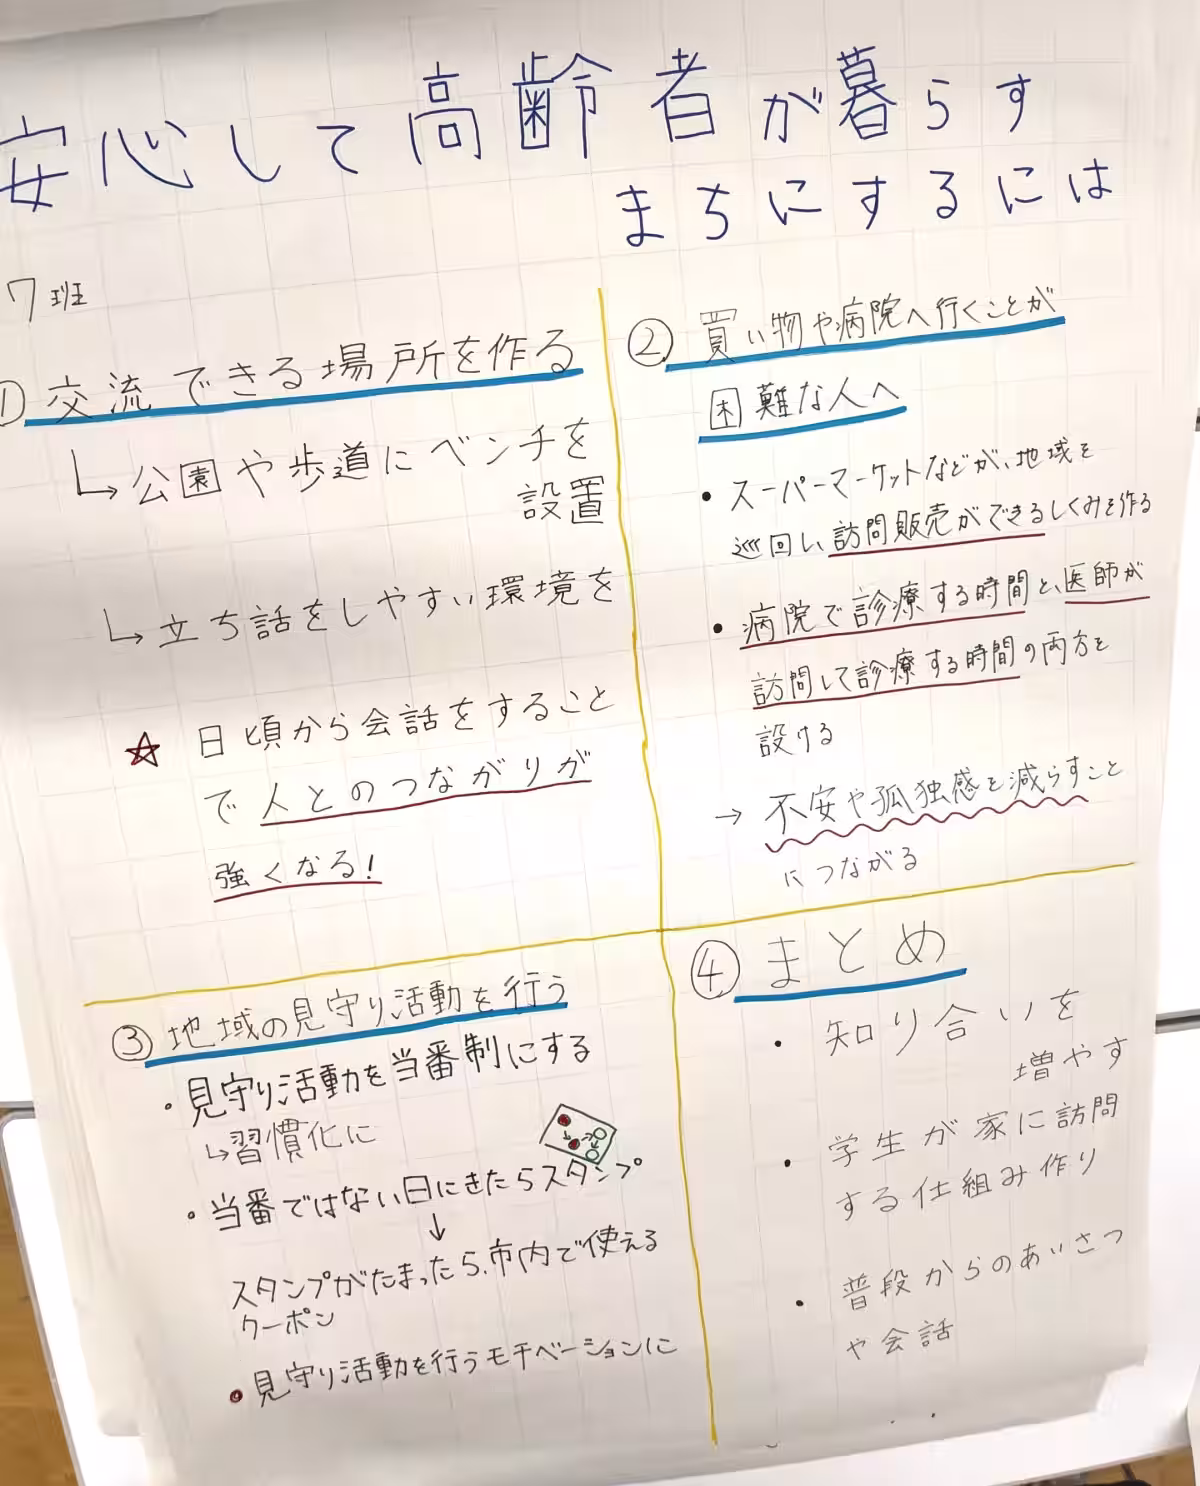 安心して高齢者が暮らす
まちにするには
7班
① 交流できる場所を作る
↳ 公園や歩道にベンチを
設置
↳ 立ち話をしやすい環境を
☆ 日頃から会話をすること
で人とのつながりが
強くなる!
② 買い物や病院へ行くことが
困難な人へ
・スーパーマーケットなどが、地域を
巡回し、訪問販売ができるしくみを作る
・病院で診療する時間と、医師が
訪問して診療する時間の両方を
設ける
→ 不安や孤独感を減らすこと
につながる
③ 地域の見守り活動を行う
・見守り活動を当番制にする
↳習慣化に
・当番ではない日にきたらスタンプ
↓
スタンプがたまったら、市内で使える
クーポン
・見守り活動を行うモチベーションに
④ まとめ
・知り合いを
増やす
・学生が家に訪問
する仕組み作り
・普段からのあいさつ
や会話